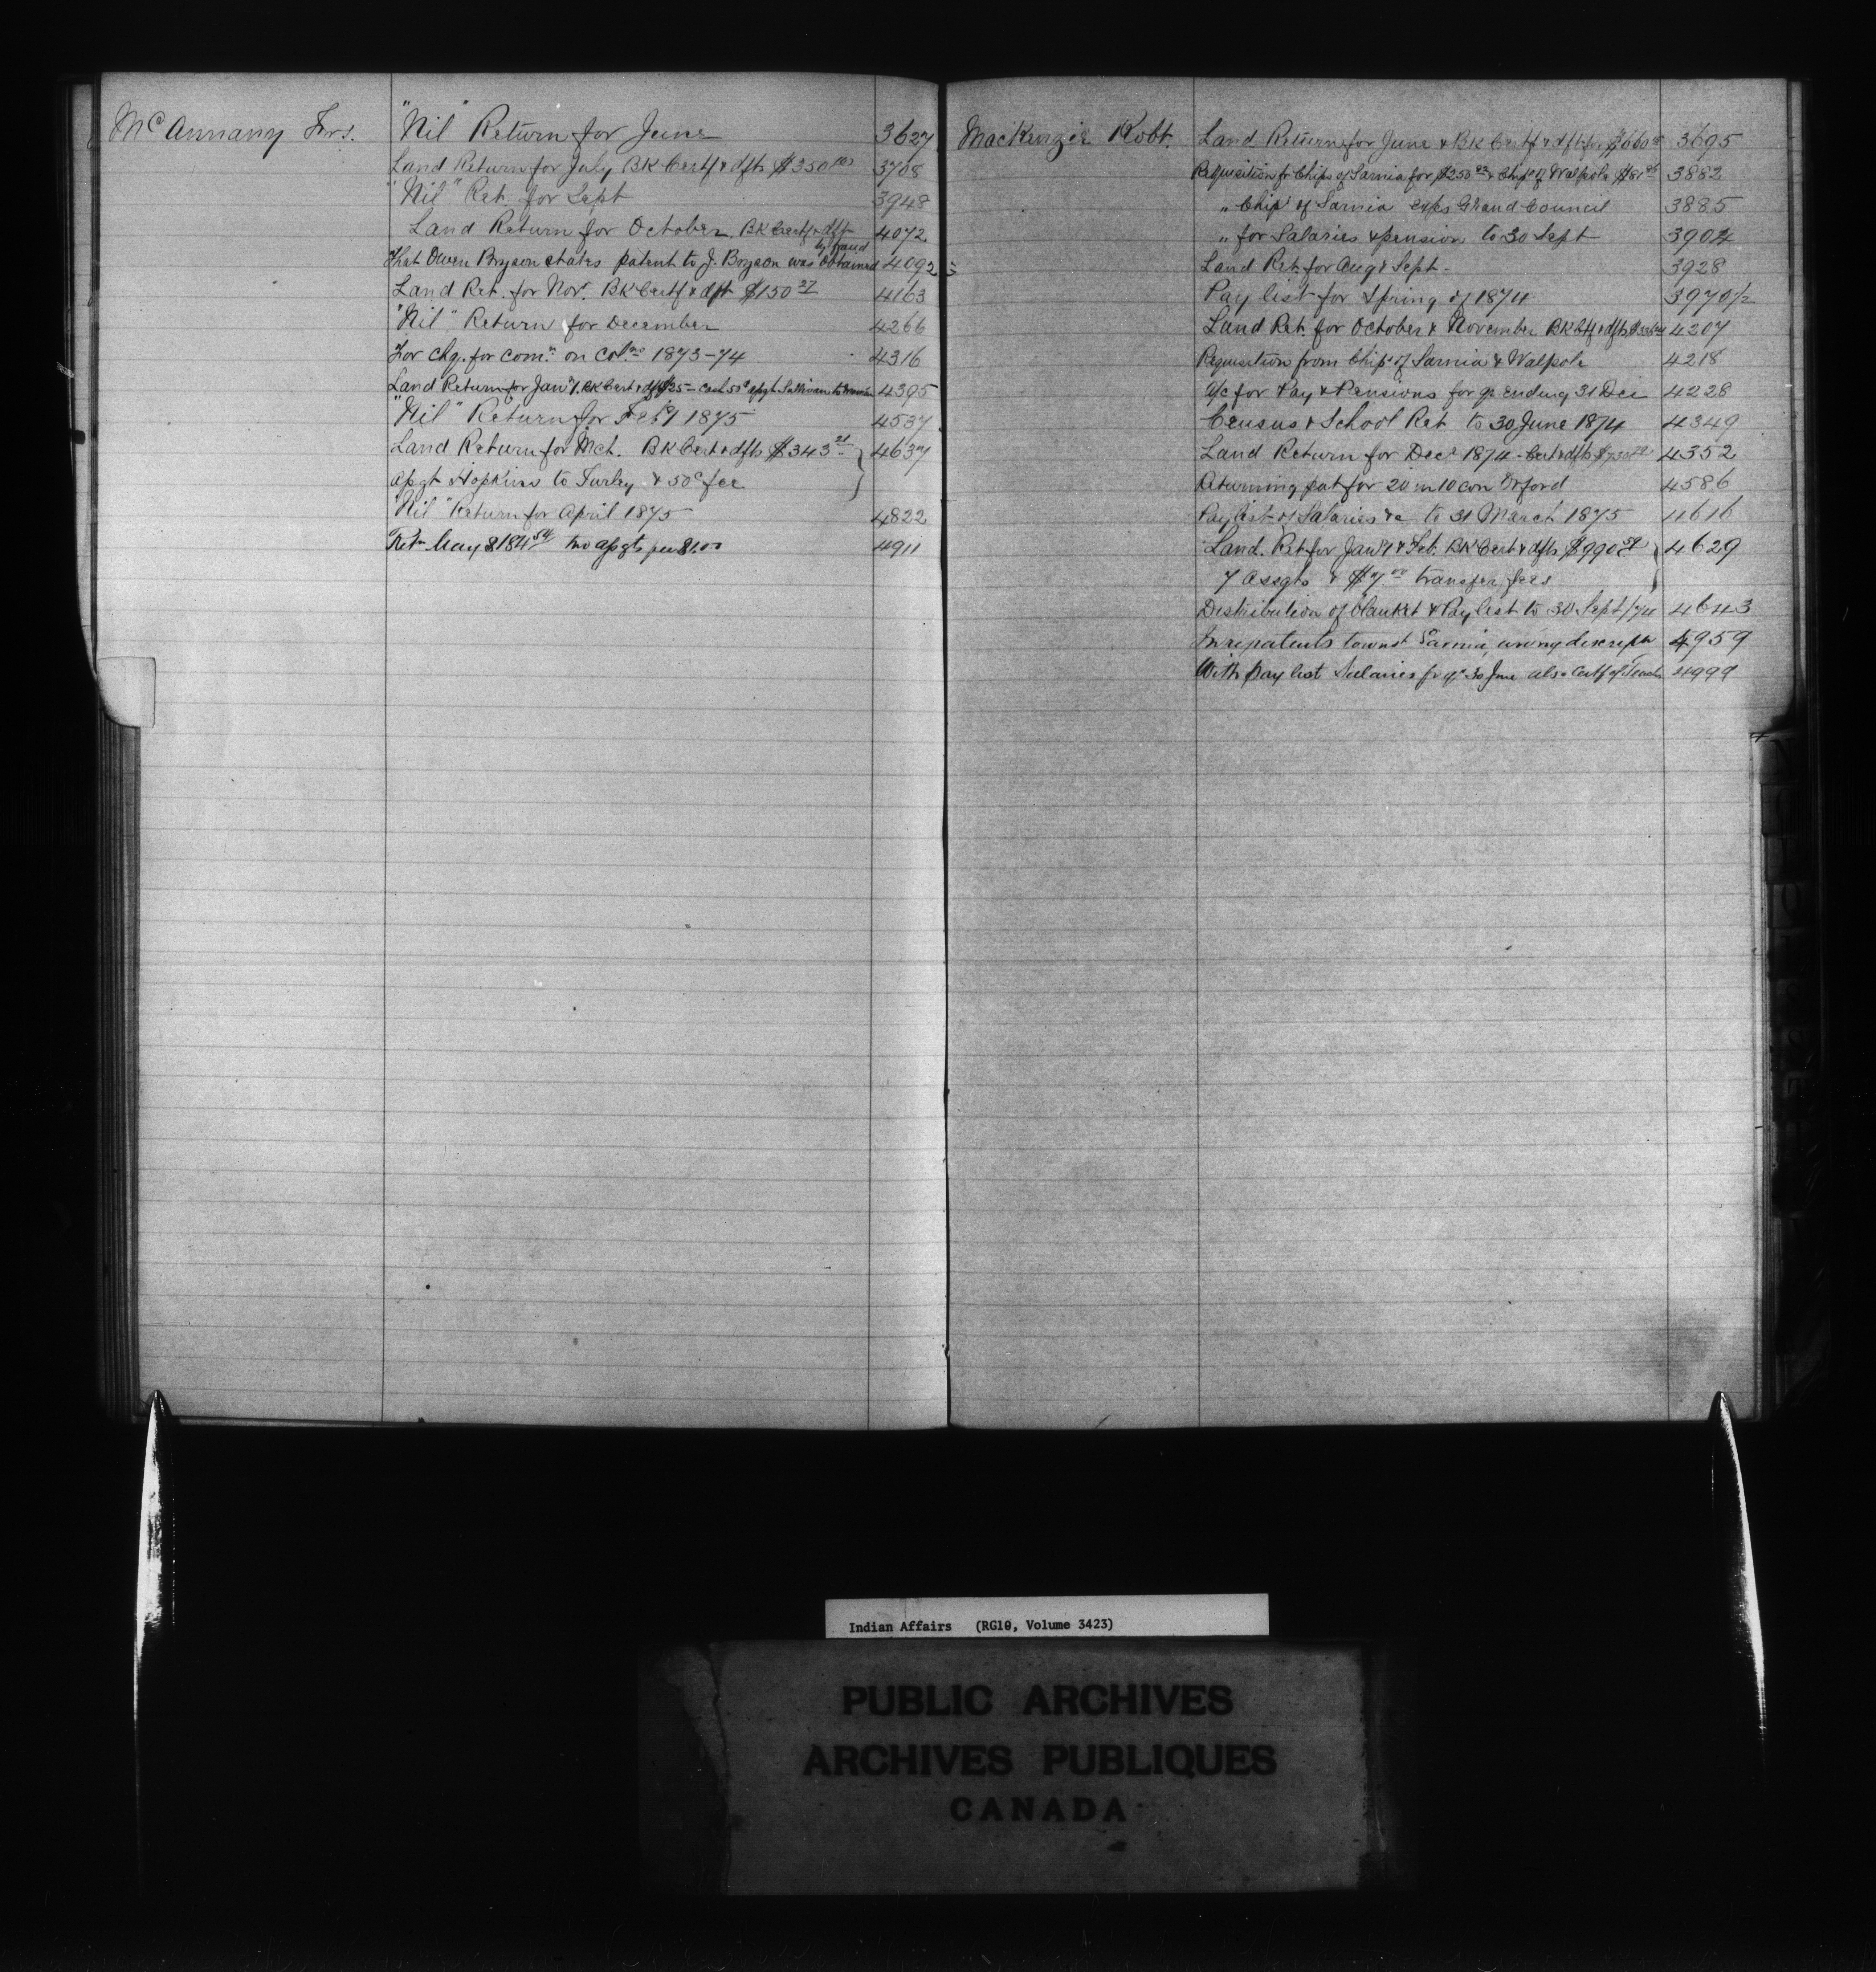 McAnnany Frs. "Nil" Return for June 3627
Land Return for July BK Certf & dfts $350 3708
"Nil" Ret. for Sept 3948
Land Return for October. BK Certf & dft 4072
by fraud
That Owen Bryson states patent to J. Bryson was obtained 4092
Land Ret. for Novr. BK Certf & dft $150 37 4163
"Nil" Return for December 4266
For chg. for comn. on colns 1873-74 4316
Land Return for Jany. BK Cert & dft $25 - Cash 50c apgt Sullivan to 4395
"Nil" Return for Feby 1875 4537
Land Return for Mch. BK Cert & dfts $343 21 4637
apgt Hopkins to Turley & 50c fee
"Nil" Return for April 1875 4822
Retn May $184 54 two apgts fees $1.00 4911
MacKenzie Robt. Land Return for June & BK Certf & dft for $660 3695
Requisition fr Chips of Sarnia for $250 & Chips of Walpole $81 3882
" Chips of Sarnia exps Grand Council 3885
" for Salaries & pension to 30 Sept 3902
Land Ret. for Aug & Sept. 3928
Pay list for Spring of 1874 3970 1/2
Land Ret. for October & November BK Ctf & dfts 4207
Requisition from Chips of Sarnia & Walpole 4218
a/c for Pay & Pensions for qr ending 31 Dec 4228
Census & School Ret. to 30 June 1874 4349
Land Return for Decr 1874 - Cert & dfts 4352
Returning pat for 20 in 10 con Orford 4586
Pay list of Salaries &c to 31 March 1875 4616
Land. Ret for Jany & Feb. BK Cert & dfts $990 4629
7 assgts & $7 00 transfer fees
Distribution of blanket & Pay list to 30 Sept/74 4643
In re patents townst Sarnia, wrong descriptn 4959
With pay list Salaries fr qr 30 June also Certf of Teacher 4999
Indian Affairs (RG10, Volume 3423)
PUBLIC ARCHIVES
ARCHIVES PUBLIQUES
CANADA